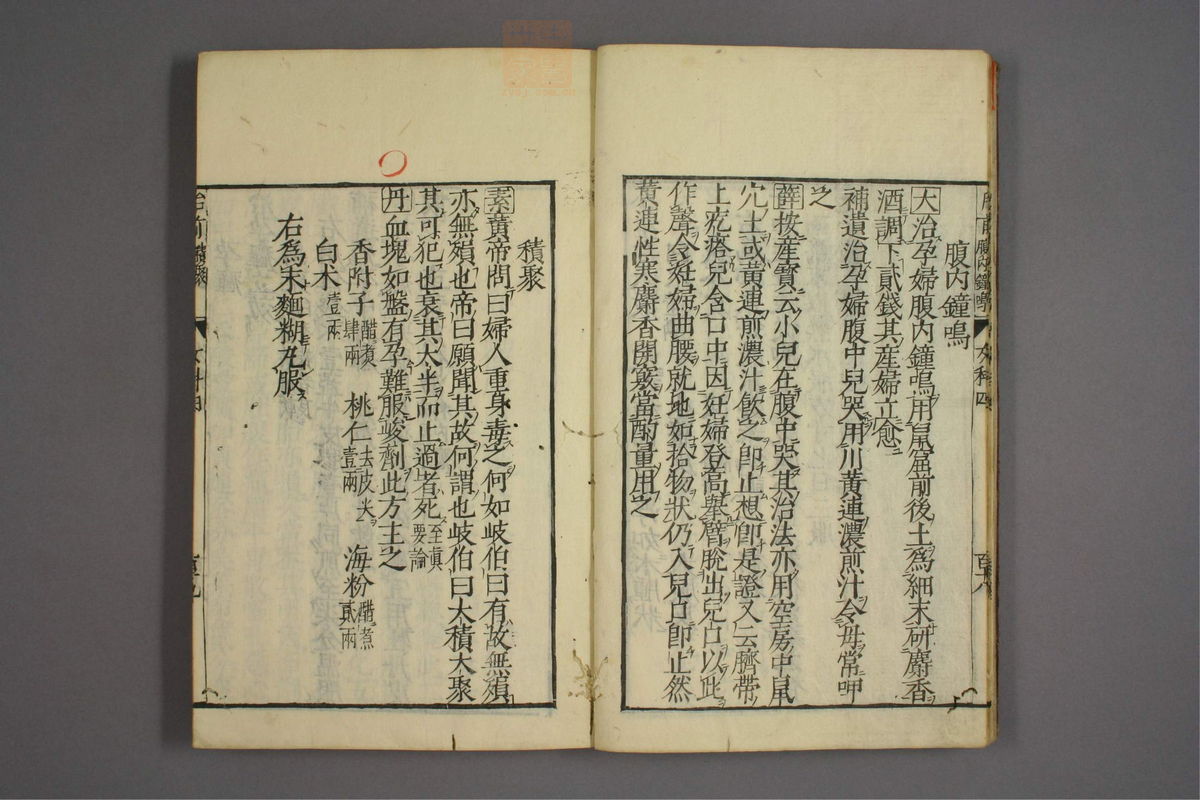 腹內鐘鳴
大治孕婦腹內鐘鳴用鼠窟前後土為細末研麝香
酒調下貳錢其產婦立愈
補遺治孕婦腹中兒哭用川黃連濃煎汁令母常呷
之
薛按產寶云小兒在腹中哭其治法亦用空房中鼠
穴土或黃連煎濃汁飲之即止想即是證又云臍帶
上疙瘩兒含口中因妊婦登高舉臂脫出兒口以此
作聲令妊婦曲腰就地如拾物狀仍入兒口即止然
黃連性寒麝香開竅當酌量用之
女科四
百六
積聚
素黃帝問曰婦人重身毒之何如岐伯曰有故無殞
亦無殞也帝曰願聞其故何謂也岐伯曰大積大聚
其可犯也衰其太半而止過者死至真要論
丹血塊如盤有孕難服峻劑此方主之
香附子醋煮肆兩 桃仁去皮尖壹兩 海粉醋煮貳兩
白朮壹兩
右為末麵糊丸服